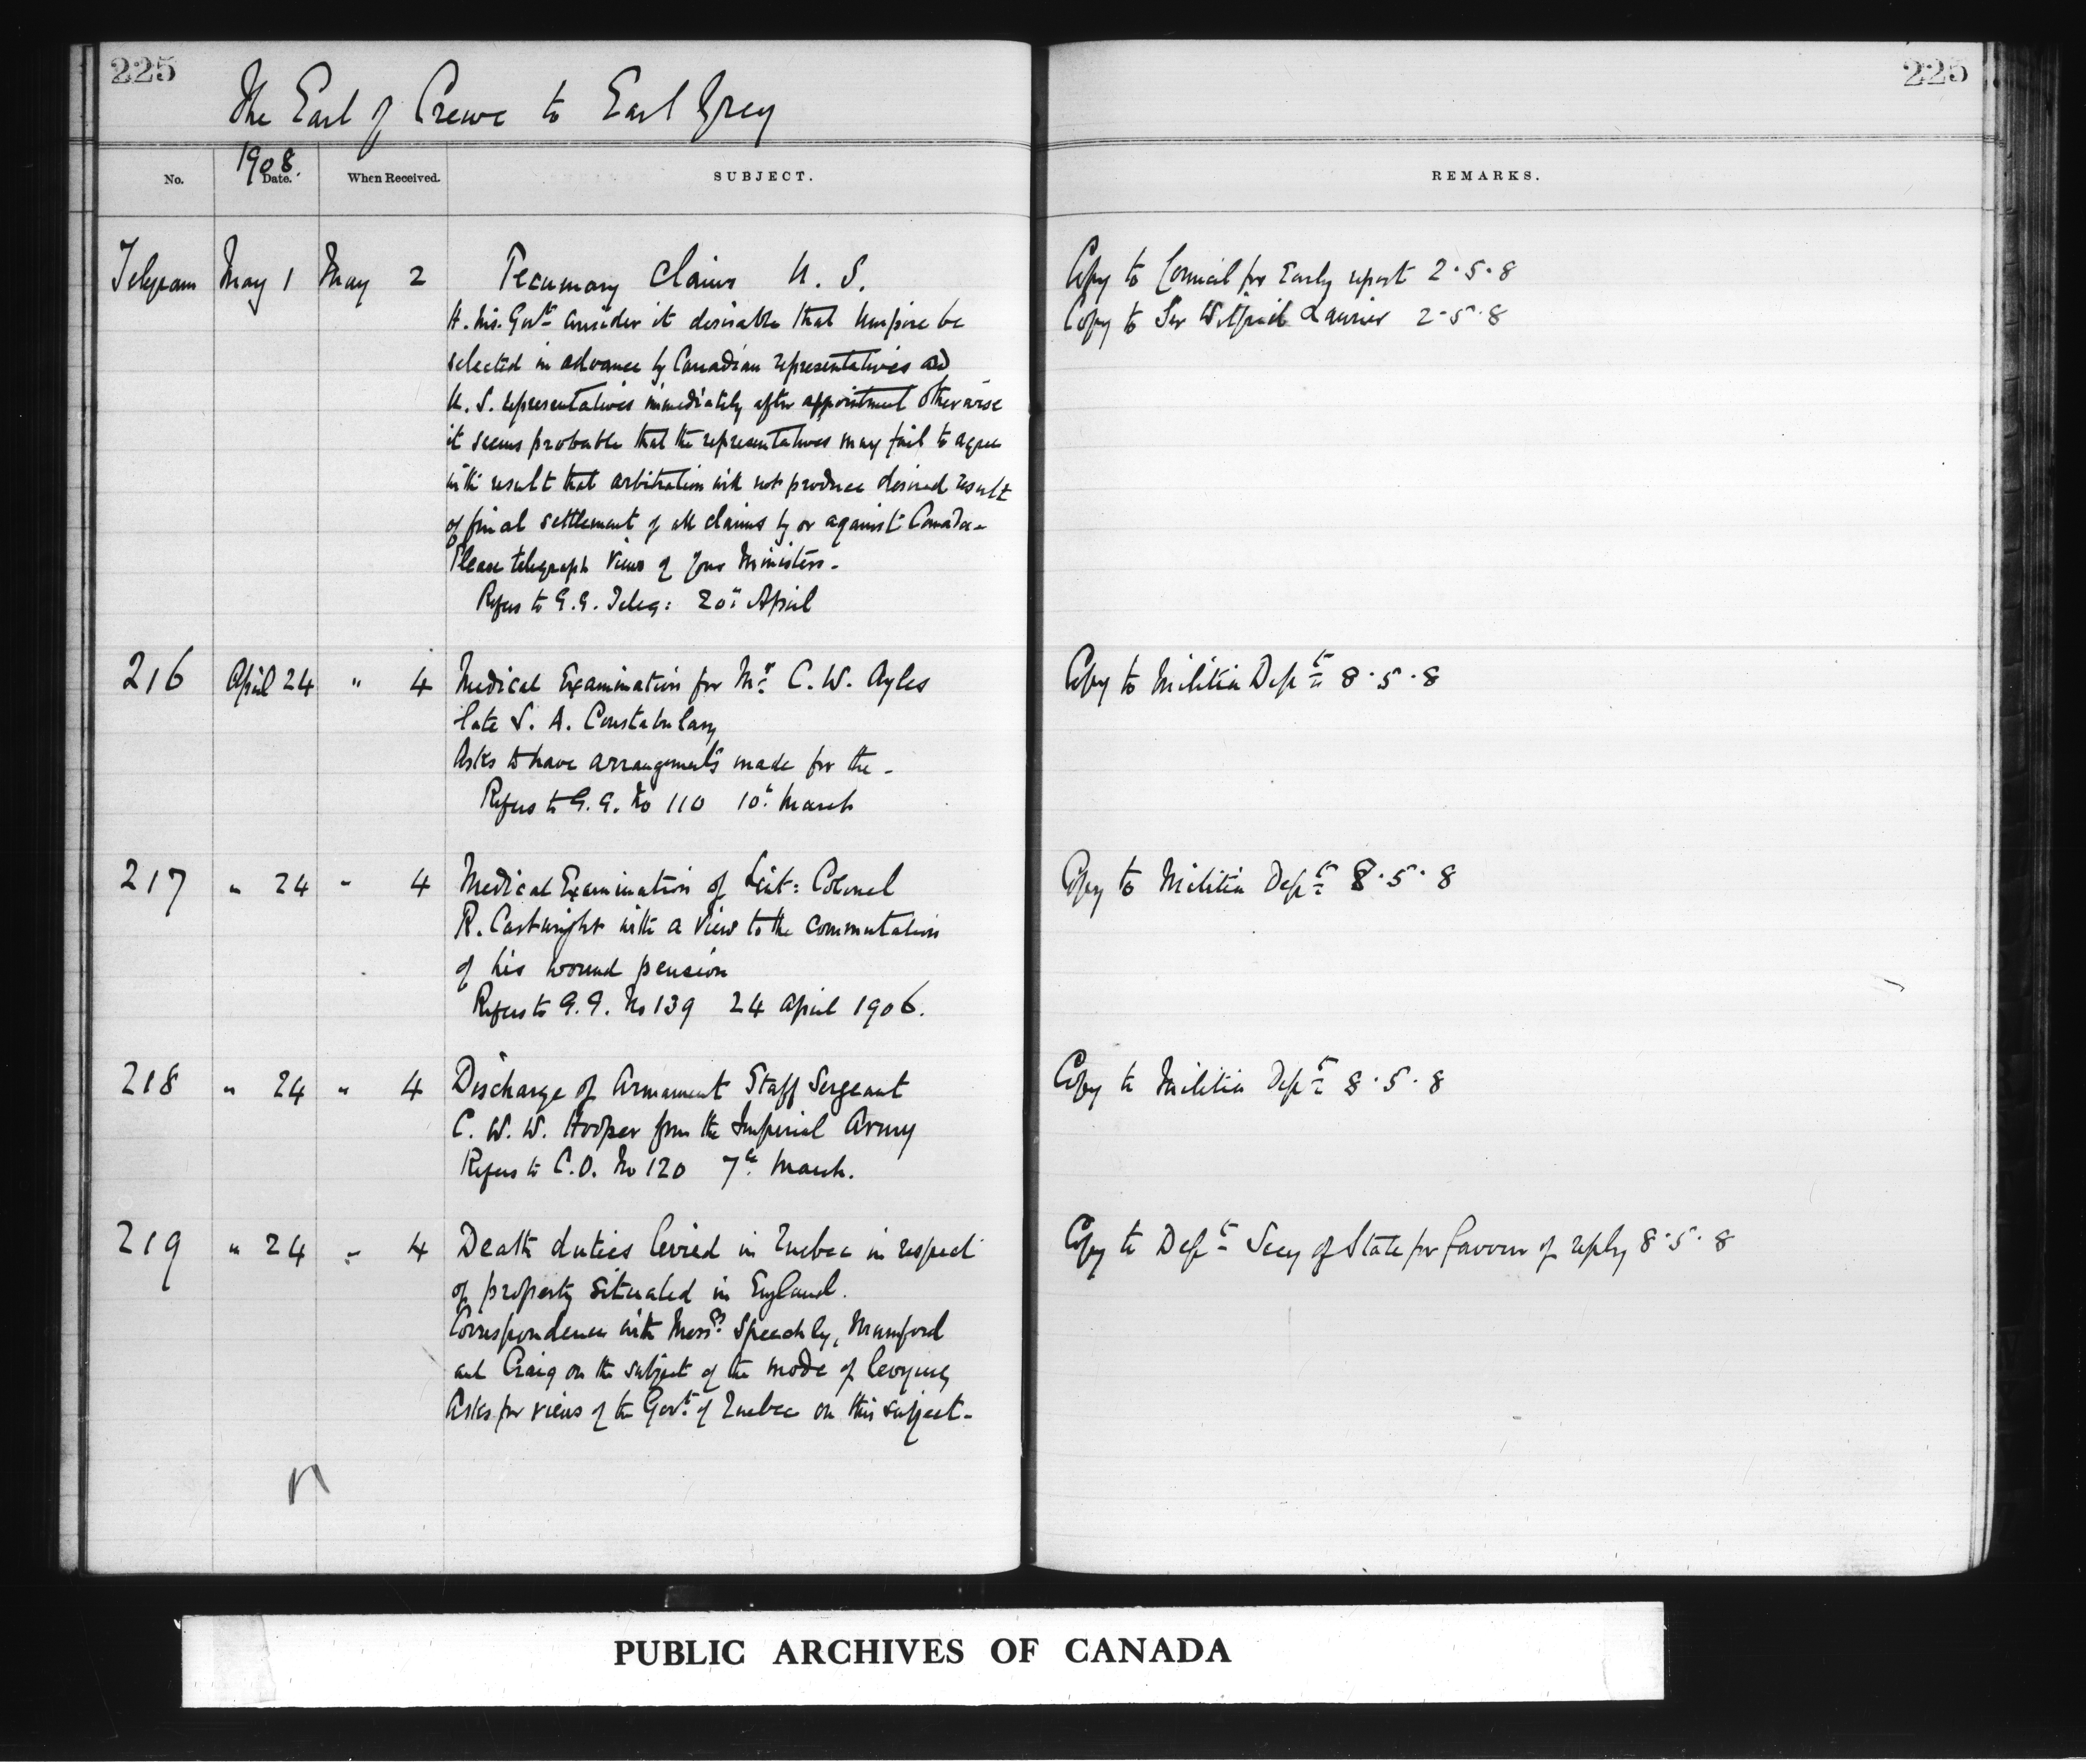 225
225
The Earl of Crewe to Earl Grey
No.
1908.
Date.
When Received.
SUBJECT.
REMARKS.
Telegram May 1 May 2 Pecuniary Claims U. S.
H. Ms. Govt consider it desirable that Umpire be
selected in advance by Canadian representatives and
U. S. representatives immediately after appointment otherwise
it seems probable that the representatives may fail to agree
with result that arbitration will not produce desired result
of final settlement of all claims by or against Canada-
Please telegraph views of your Ministers-
Refers to G.G. Teleg: 20th April
Copy to Council for Early report 2.5.8
Copy to Sir Wilfrid Laurier 2.5.8
216 April 24 " 4 Medical Examination for Mr C. W. Ayles
late S. A. Constabulary
Asks to have arrangements made for the -
Refers to G.G. No 110 10th March
Copy to Militia Dept 8.5.8
217 " 24 " 4 Medical Examination of Leit: Colonel
R. Cartwright with a view to the commutation
of his wound pension
Refers to G.G. No 139 24 April 1906.
Copy to Militia Dept 8.5.8
218 " 24 " 4 Discharge of Armament Staff Sergeant
C. W. W. Hooper from the Imperial Army
Refers to C.O. No 120 7th March.
Copy to Militia Dept 8.5.8
219 " 24 " 4 Death duties levied in Quebec in respect
of property situated in England.
Correspondence with Messrs Speechly, Mumford
and Craig on the subject of the mode of levying
Asks for views of the Govt of Quebec on this subject-
Copy to Dept Secy of State for favour of reply 8.5.8
PUBLIC ARCHIVES OF CANADA